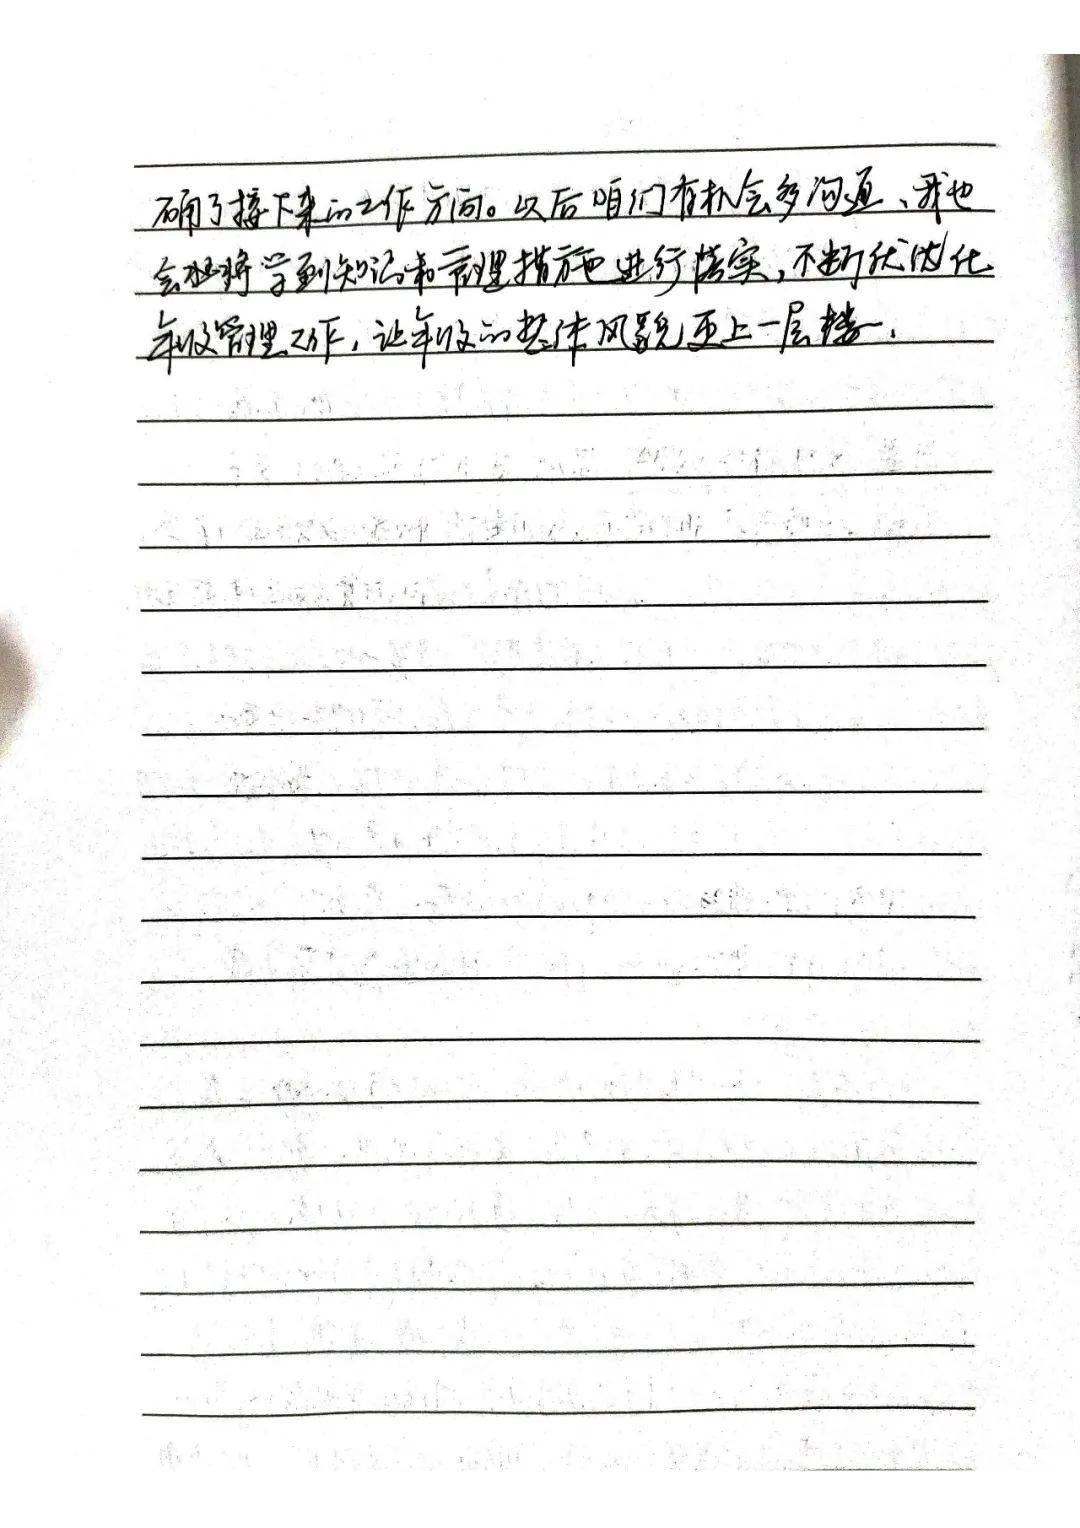 确了接下来的工作方向。以后咱们有机会多沟通、我也
会将学到知识和管理措施进行落实,不断优化
年级管理工作,让年级的整体风貌更上一层楼.